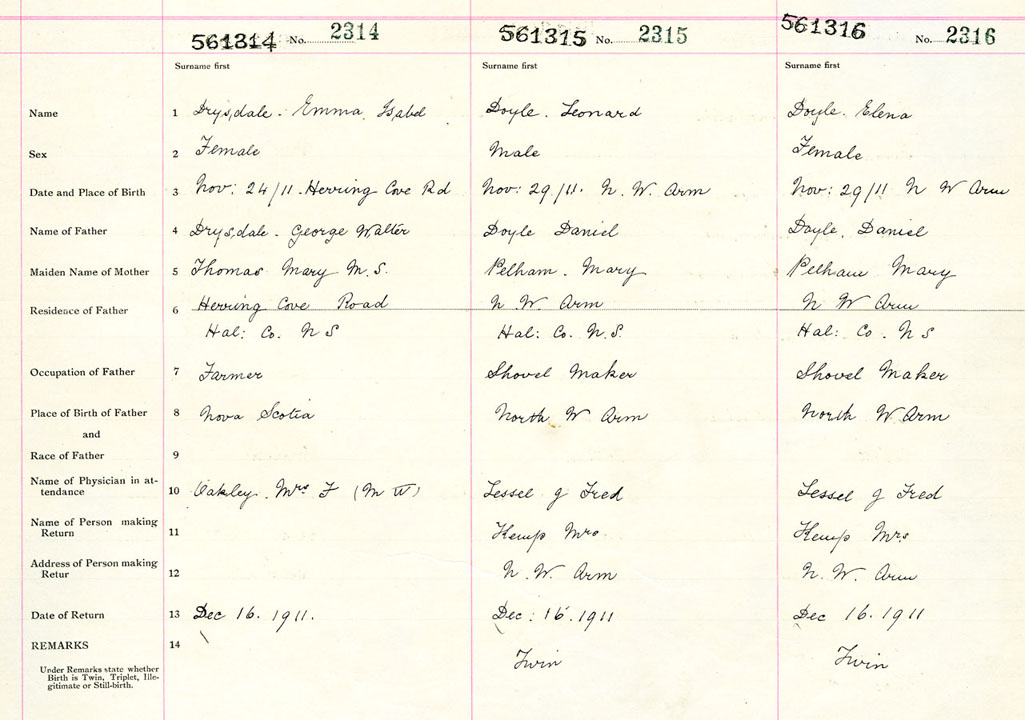 561314 No. 2314 561315 No. 2315 561316 No. 2316
Surname first Surname first Surname first
Name 1 Drysdale. Emma Isabel Doyle. Leonard Doyle. Elena
Sex 2 Female Male Female
Date and Place of Birth 3 Nov: 24/11. Herring Cove Rd Nov: 29/11. N. W. Arm Nov: 29/11 N W Arm
Name of Father 4 Drysdale. George Walter Doyle Daniel Doyle. Daniel
Maiden Name of Mother 5 Thomas Mary M. S. Pelham. Mary Pelham Mary
Residence of Father 6 Herring Cove Road N. W. Arm N W Arm
Hal: Co. N S Hal: Co. N.S. Hal: Co. N S
Occupation of Father 7 Farmer Shovel Maker Shovel Maker
Place of Birth of Father 8 Nova Scotia North W Arm North W Arm
and
Race of Father 9
Name of Physician in at-
tendance 10 Oakley. Mrs F (M W) Lessel g Fred Lessel g Fred
Name of Person making
Return 11 Kemp Mrs Kemp Mrs
Address of Person making
Retur 12 N. W. Arm N. W. Arm
Date of Return 13 Dec 16. 1911. Dec. 16. 1911 Dec 16. 1911
REMARKS 14
Twin Twin
Under Remarks state whether
Birth is Twin, Triplet, Ille-
gitimate or Still-birth.